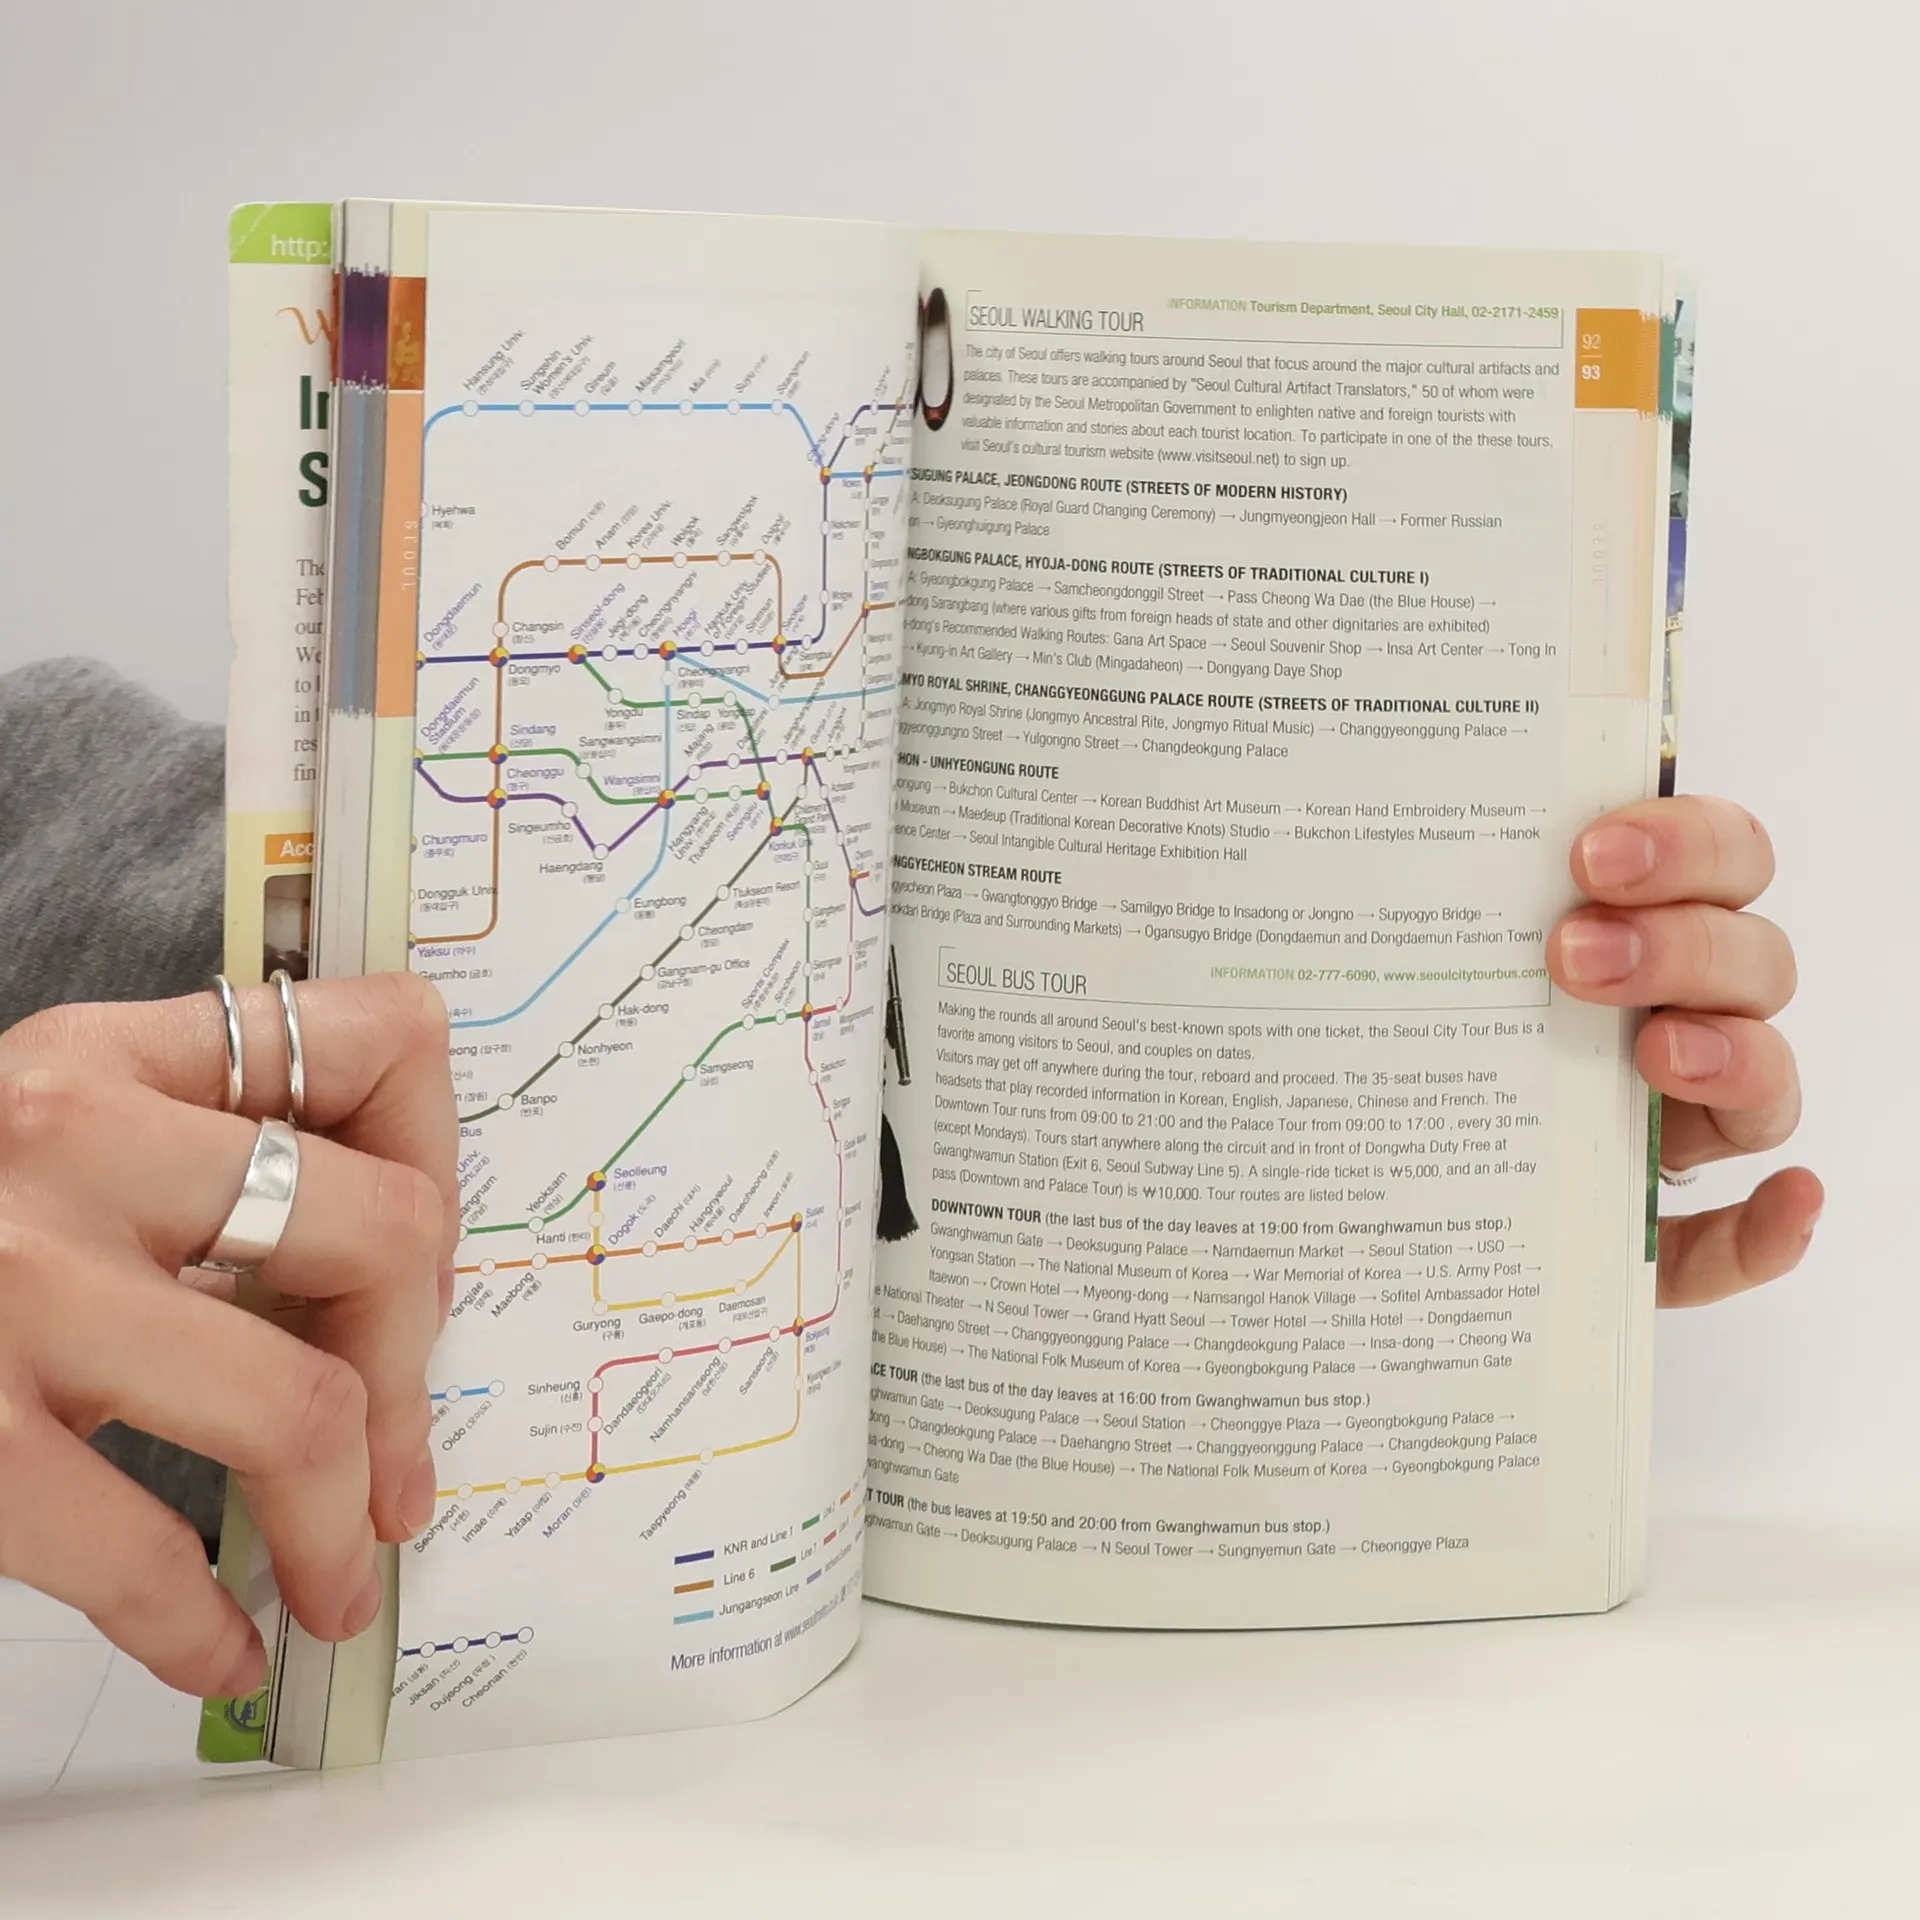 http:
Hansung Univ.
Sungshin
Women's Univ.
Gireum
Miasangeori
Mia
Suyu
Hyehwa
(혜화)
Bomun
Anam
Korea Univ.
Wolgok
Sangwolgok
Dongdaemun
Changsin
(창신)
Sinseol-dong
Jegi-dong
Cheongnyangni
Hoegi
Hankuk Univ.
of Foreign Studies
Dongmyo
(동묘)
Cheongnyangni
Dongdaemun
Stadium
Sindang
(신당)
Yongdu
(용두)
Sindap
Sangwangsimni
Cheonggu
(청구)
Wangsimni
Majang
Singeumho
(신금호)
Haengdang
(행당)
Hanyang
Univ.
Ttukseom
Chungmuro
(충무로)
Konkuk Univ.
Dongguk Univ.
(동대입구)
Eungbong
(응봉)
Ttukseom Resort
Yaksu (약수)
Cheongdam
(청담)
Geumho (금호)
Gangnam-gu Office
(강남구청)
Sports Complex
Sincheon
Hak-dong
(학동)
Nonhyeon
(논현)
Samgseong
(삼성)
Banpo
(반포)
Bus
Seolleung
(선릉)
Yeoksam
Hanti (한티)
Dogok
Daechi
Hangnyeoul
Daecheong
Irwon
Yangjae
Maebong
Guryong
(구룡)
Gaepo-dong
(개포동)
Daemosan
Sinheung
(신흥)
Sujin (수진)
Dandaeogeori
Namhansanseong
Sanseong
Oido
Seohyeon
Imae
Yatap
Moran
Taepyeong
KNR and Line 1
Line 6
Jungangseon Line
More information at www.
Jiksan
Dujeong
Cheonan
92
93
SEOUL WALKING TOUR
INFORMATION Tourism Department, Seoul City Hall, 02-2171-2459
The city of Seoul offers walking tours around Seoul that focus around the major cultural artifacts and
palaces. These tours are accompanied by "Seoul Cultural Artifact Translators," 50 of whom were
designated by the Seoul Metropolitan Government to enlighten native and foreign tourists with
valuable information and stories about each tourist location. To participate in one of the these tours,
visit Seoul's cultural tourism website (www.visitseoul.net) to sign up.
SUGUNG PALACE, JEONGDONG ROUTE (STREETS OF MODERN HISTORY)
A: Deoksugung Palace (Royal Guard Changing Ceremony) → Jungmyeongjeon Hall → Former Russian
on → Gyeonghuigung Palace
NGBOKGUNG PALACE, HYOJA-DONG ROUTE (STREETS OF TRADITIONAL CULTURE I)
A: Gyeongbokgung Palace → Samcheongdonggil Street → Pass Cheong Wa Dae (the Blue House) →
dong Sarangbang (where various gifts from foreign heads of state and other dignitaries are exhibited)
-dong's Recommended Walking Routes: Gana Art Space → Seoul Souvenir Shop → Insa Art Center → Tong In
→ Kyung-in Art Gallery → Min's Club (Mingadaheon) → Dongyang Daye Shop
MYO ROYAL SHRINE, CHANGGYEONGGUNG PALACE ROUTE (STREETS OF TRADITIONAL CULTURE II)
A: Jongmyo Royal Shrine (Jongmyo Ancestral Rite, Jongmyo Ritual Music) → Changgyeonggung Palace →
ggyeonggungno Street → Yulgongno Street → Changdeokgung Palace
HON - UNHYEONGUNG ROUTE
ongung → Bukchon Cultural Center → Korean Buddhist Art Museum → Korean Hand Embroidery Museum →
Museum → Maedeup (Traditional Korean Decorative Knots) Studio → Bukchon Lifestyles Museum → Hanok
ence Center → Seoul Intangible Cultural Heritage Exhibition Hall
NGGYECHEON STREAM ROUTE
gyecheon Plaza → Gwangtonggyo Bridge → Samilgyo Bridge to Insadong or Jongno → Supyogyo Bridge →
okdari Bridge (Plaza and Surrounding Markets) → Ogansugyo Bridge (Dongdaemun and Dongdaemun Fashion Town)
SEOUL BUS TOUR
INFORMATION 02-777-6090, www.seoulcitytourbus.com
Making the rounds all around Seoul's best-known spots with one ticket, the Seoul City Tour Bus is a
favorite among visitors to Seoul, and couples on dates.
Visitors may get off anywhere during the tour, reboard and proceed. The 35-seat buses have
headsets that play recorded information in Korean, English, Japanese, Chinese and French. The
Downtown Tour runs from 09:00 to 21:00 and the Palace Tour from 09:00 to 17:00 , every 30 min.
(except Mondays). Tours start anywhere along the circuit and in front of Dongwha Duty Free at
Gwanghwamun Station (Exit 6, Seoul Subway Line 5). A single-ride ticket is ₩5,000, and an all-day
pass (Downtown and Palace Tour) is ₩10,000. Tour routes are listed below.
DOWNTOWN TOUR (the last bus of the day leaves at 19:00 from Gwanghwamun bus stop.)
Gwanghwamun Gate → Deoksugung Palace → Namdaemun Market → Seoul Station → USO →
Yongsan Station → The National Museum of Korea → War Memorial of Korea → U.S. Army Post →
Itaewon → Crown Hotel → Myeong-dong → Namsangol Hanok Village → Sofitel Ambassador Hotel
e National Theater → N Seoul Tower → Grand Hyatt Seoul → Tower Hotel → Shilla Hotel → Dongdaemun
→ Daehangno Street → Changgyeonggung Palace → Changdeokgung Palace → Insa-dong → Cheong Wa
the Blue House) → The National Folk Museum of Korea → Gyeongbokgung Palace → Gwanghwamun Gate
CE TOUR (the last bus of the day leaves at 16:00 from Gwanghwamun bus stop.)
ghwamun Gate → Deoksugung Palace → Seoul Station → Cheonggye Plaza → Gyeongbokgung Palace →
dong → Changdeokgung Palace → Daehangno Street → Changgyeonggung Palace → Changdeokgung Palace
sa-dong → Cheong Wa Dae (the Blue House) → The National Folk Museum of Korea → Gyeongbokgung Palace
wanghwamun Gate
T TOUR (the bus leaves at 19:50 and 20:00 from Gwanghwamun bus stop.)
ghwamun Gate → Deoksugung Palace → N Seoul Tower → Sungnyemun Gate → Cheonggye Plaza